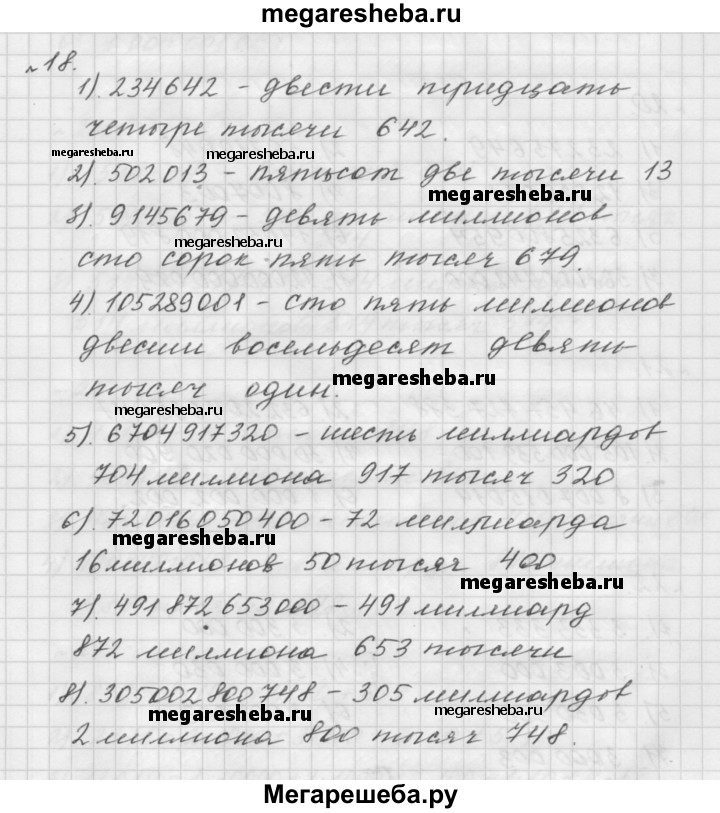 megaresheba.ru
№18.
1). 234642 - двести тридцать
четыре тысячи 642.
megaresheba.ru megaresheba.ru
2). 502013 - пятьсот две тысячи 13
megaresheba.ru
3). 9145679 - девять миллионов
megaresheba.ru
сто сорок пять тысяч 679.
4). 105289001 - сто пять миллионов
двести восемьдесят девять
тысяч один. megaresheba.ru
megaresheba.ru
5). 6704917320 - шесть миллиардов
704 миллиона 917 тысяч 320
6). 72016050400 - 72 миллиарда
megaresheba.ru
16 миллионов 50 тысяч 400
megaresheba.ru
7). 491872653000 - 491 миллиард
872 миллиона 653 тысячи
8). 305002800748 - 305 миллиардов
megaresheba.ru megaresheba.ru
2 миллиона 800 тысяч 748.
Мегарешеба.ру